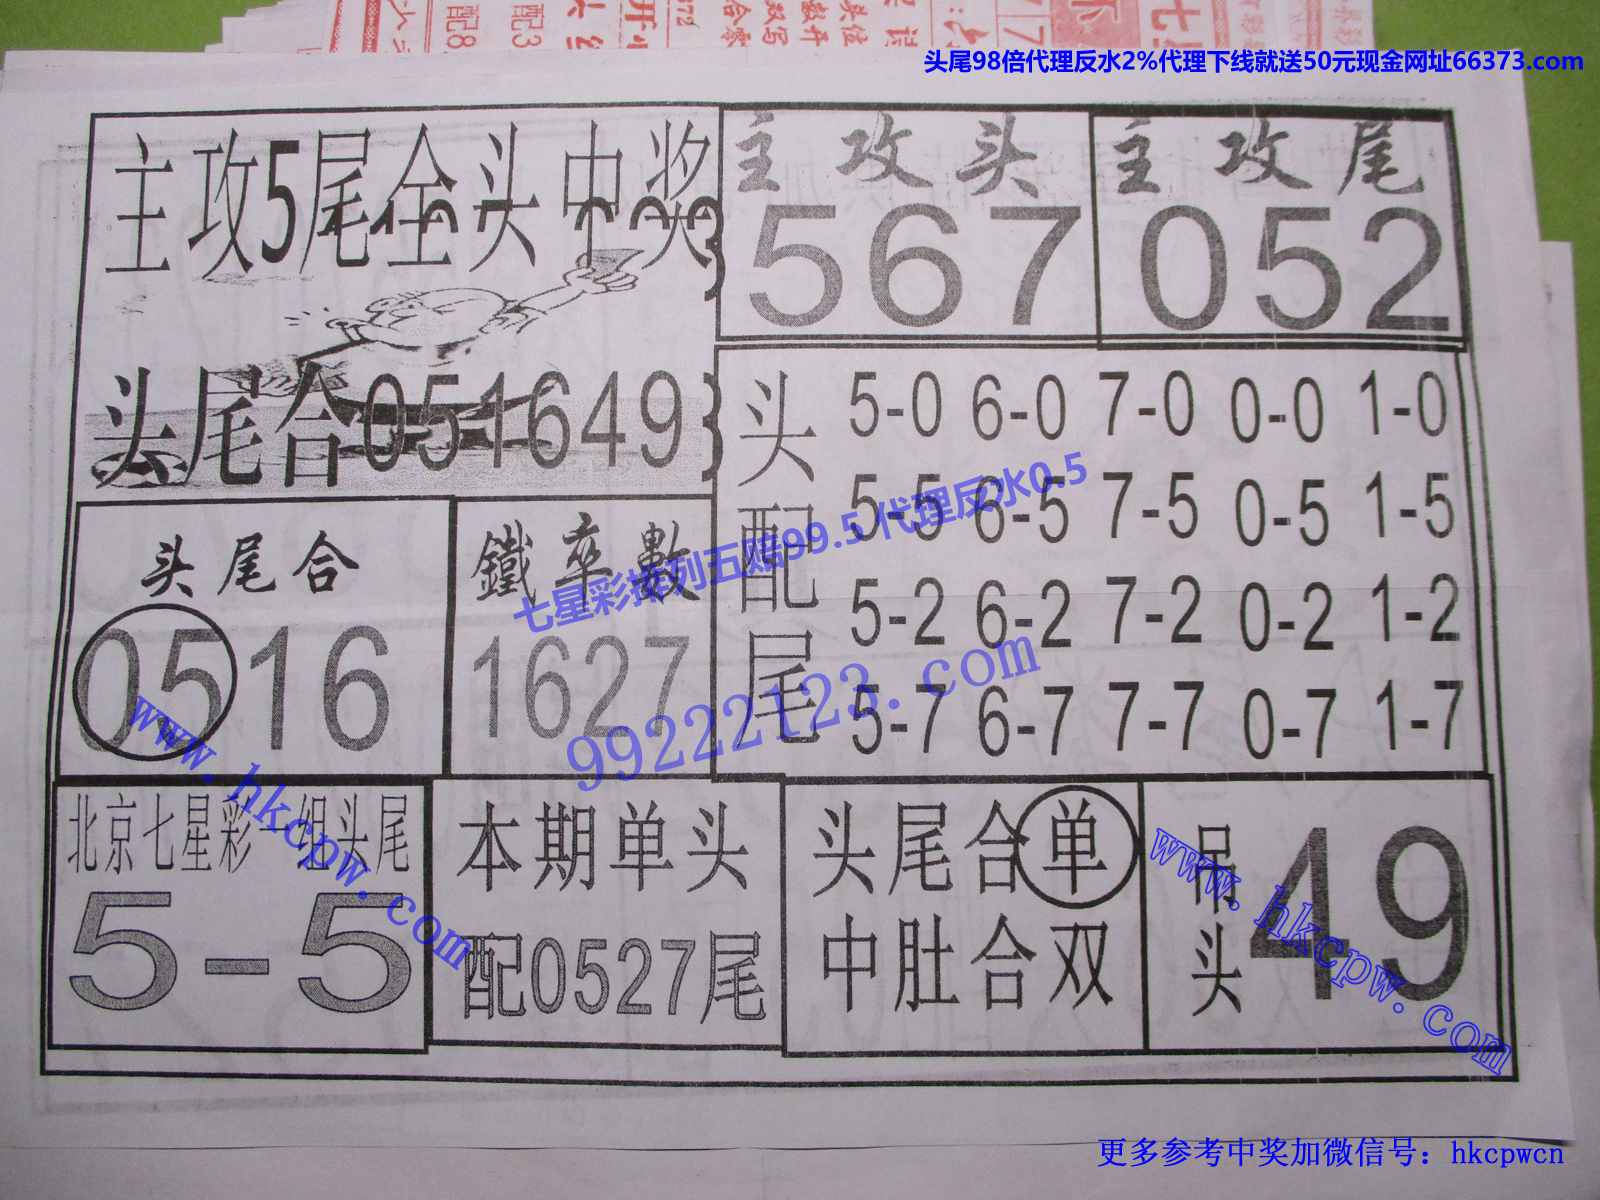 头尾98倍代理反水2%代理下线就送50元现金网址66373.com
主攻5尾全头中奖
主攻头
567
主攻尾
052
头尾合051649
头配尾
5-0 6-0 7-0 0-0 1-0
5-5 6-5 7-5 0-5 1-5
5-2 6-2 7-2 0-2 1-2
5-7 6-7 7-7 0-7 1-7
头尾合
0516
鐵率數
1627
七星彩排列五赔99.5 代理反水0.5
99222123.com
www.hkcpw.com
北京七星彩一组头尾
5-5
本期单头
配0527尾
头尾合单
中肚合双
吊头
49
www.hkcpw.com
更多参考中奖加微信号：hkcpwcn